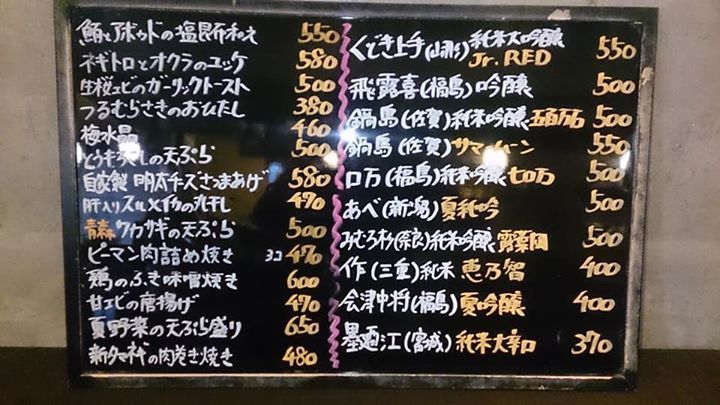 鮪とアボカドの塩昆布和え 550
ネギトロとオクラのユッケ 580
生桜エビのガーリックトースト 500
つるむらさきのおひたし 380
梅水晶 460
とうもろこしの天ぷら 500
自家製 明太チーズさつまあげ 580
肝入りスルメイカの丸干し 470
青森ワカサギの天ぷら 500
ピーマン肉詰め焼き 2コ 470
鶏のふき味噌焼き 600
甘エビの唐揚げ 470
夏野菜の天ぷら盛り 650
新タマネギの肉巻き焼き 480
くどき上手(山形)純米大吟醸 Jr. RED 550
飛露喜(福島)吟醸 500
鍋島(佐賀)純米吟醸 五百万石 500
鍋島(佐賀)サマームーン 550
ロ万(福島)純米吟醸 七ロ万 500
あべ(新潟)夏純吟 500
みむろ杉(奈良)純米吟醸 露葉風 500
作(三重)純米 恵乃智 400
会津中将(福島)夏吟醸 400
墨廼江(宮城)純米大辛口 370